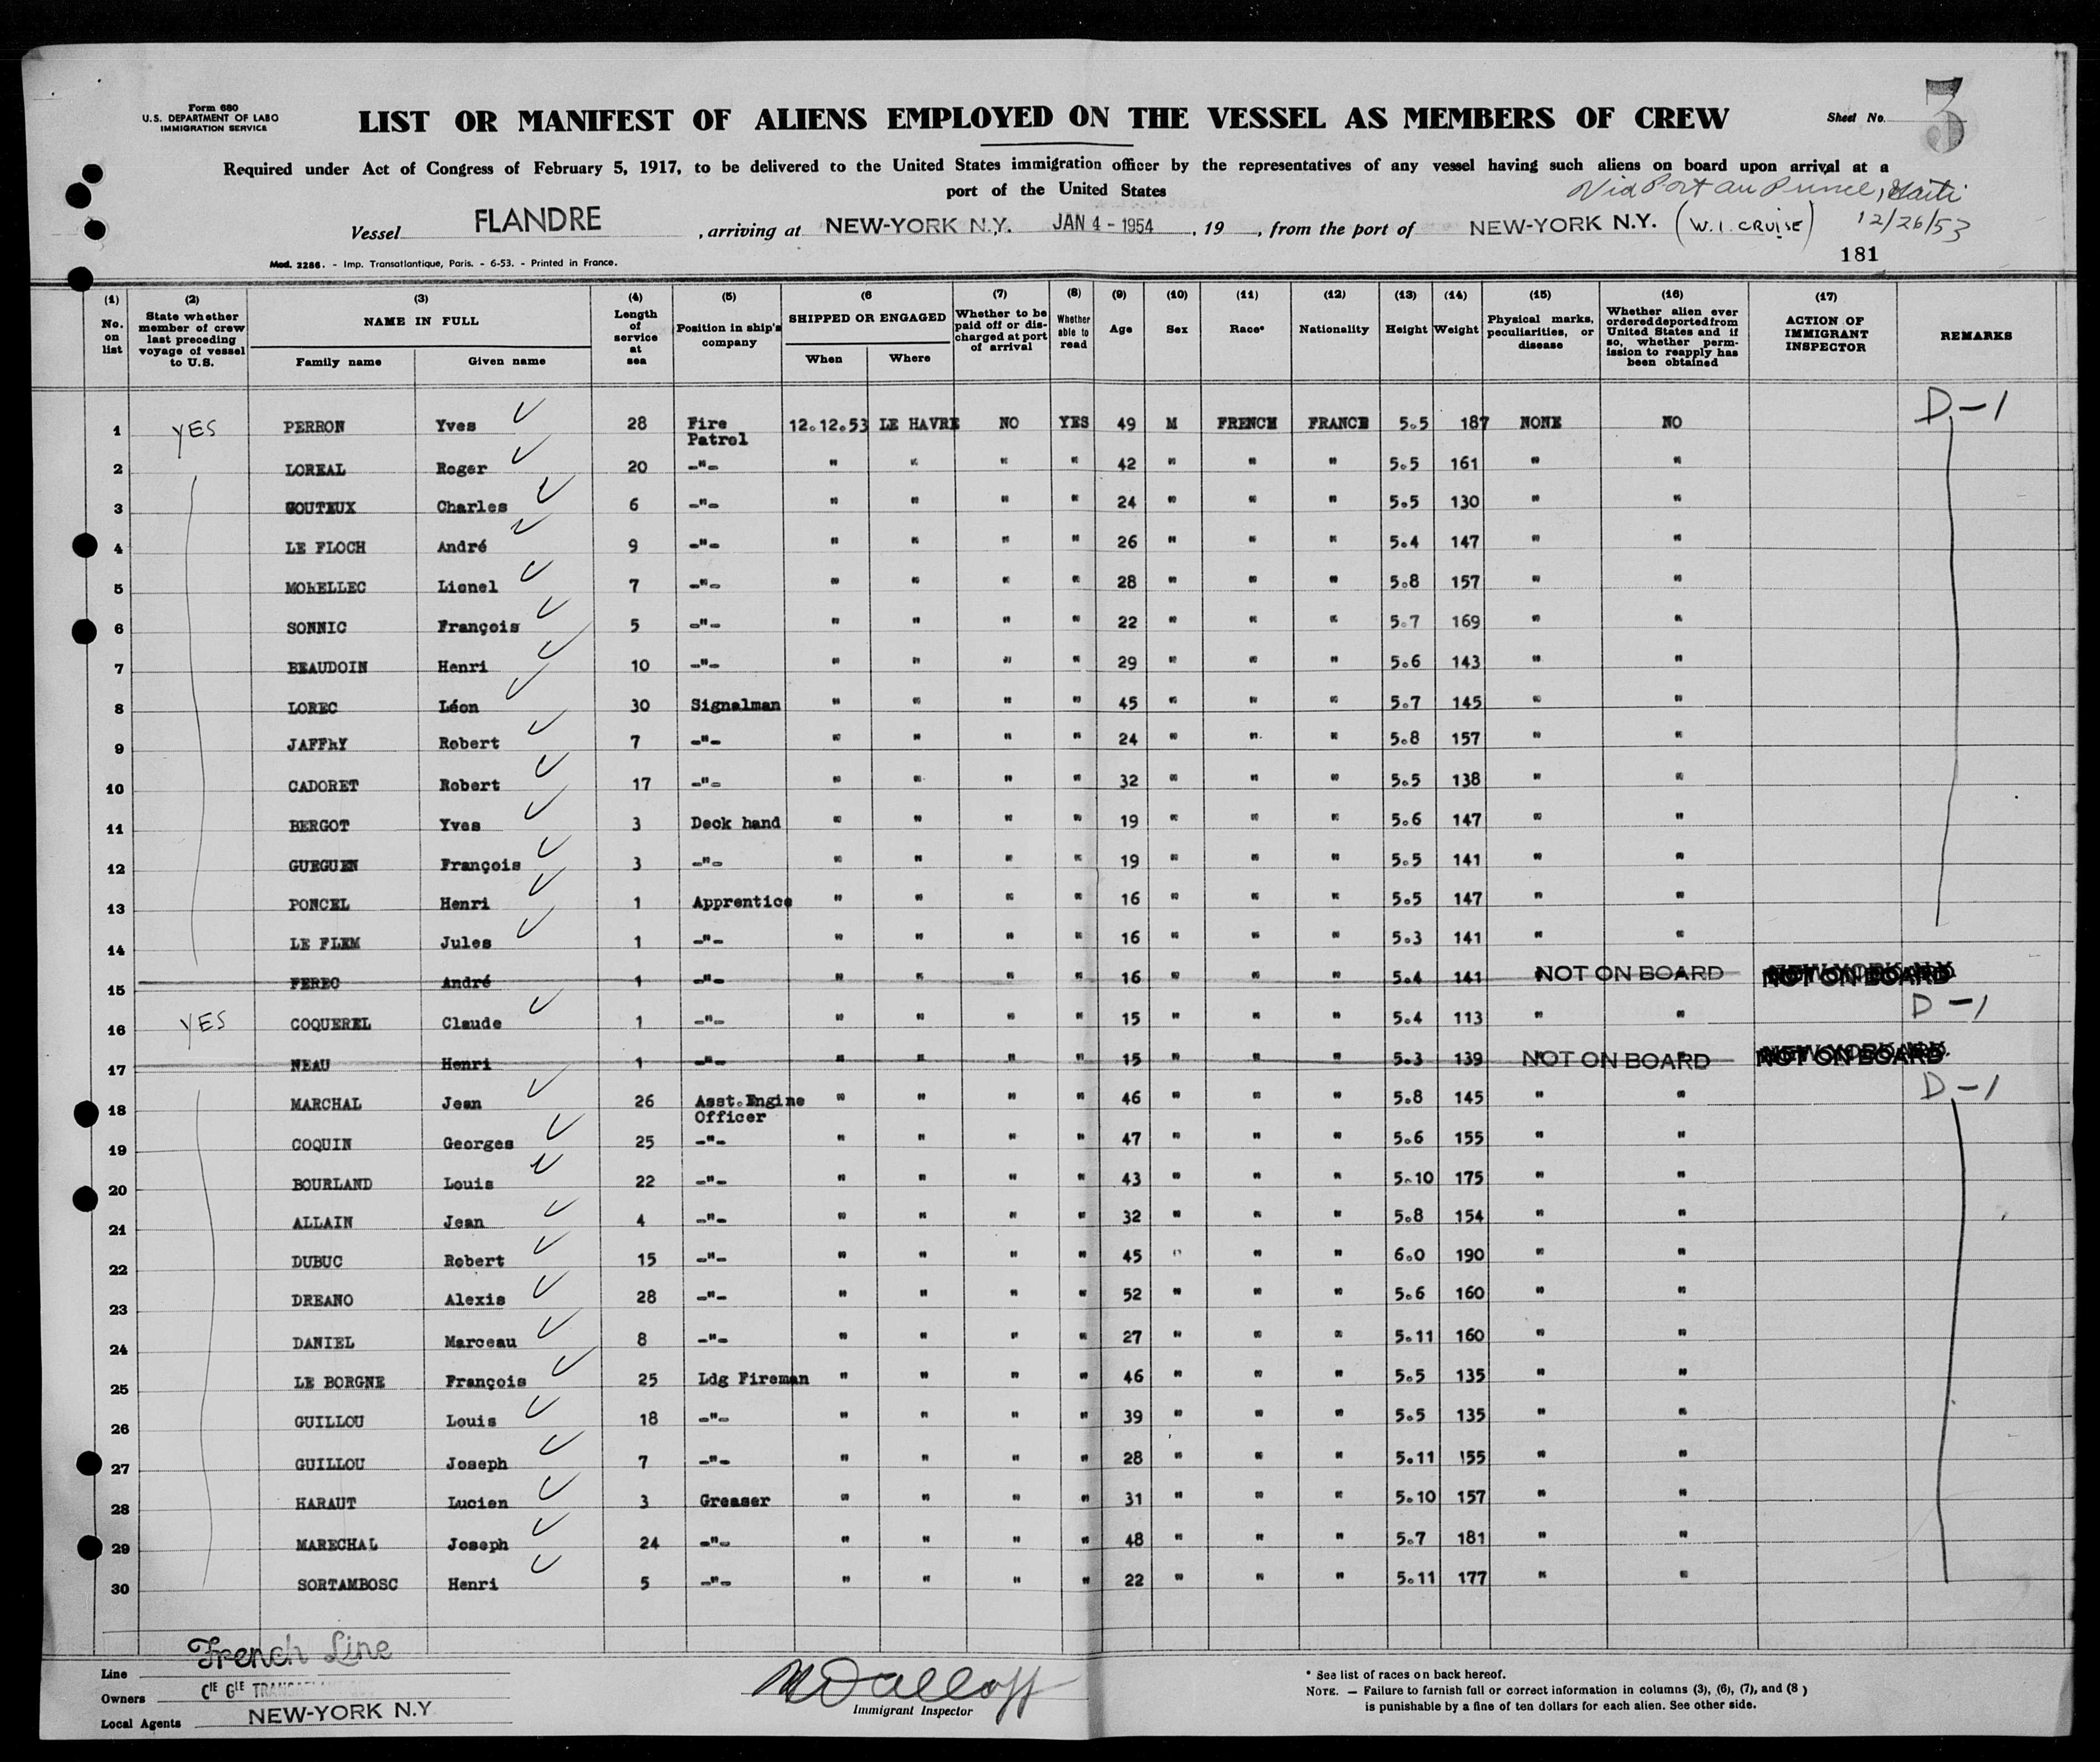 Form 680
U.S. DEPARTMENT OF LABO
IMMIGRATION SERVICE
LIST OR MANIFEST OF ALIENS EMPLOYED ON THE VESSEL AS MEMBERS OF CREW
Sheet No. 3
Required under Act of Congress of February 5, 1917, to be delivered to the United States immigration officer by the representatives of any vessel having such aliens on board upon arrival at a
port of the United States
Via Port au Prince, Haiti
Vessel FLANDRE, arriving at NEW-YORK N.Y. JAN 4 - 1954, 19 , from the port of NEW-YORK N.Y. (W.I. CRUISE) 12/26/53
Mod. 2286. - Imp. Transatlantique, Paris. - 6-53. - Printed in France.
181
(1) No. on list
(2) State whether member of crew last preceding voyage of vessel to U.S.
(3) NAME IN FULL Family name Given name
(4) Length of service at sea
(5) Position in ship's company
(6 SHIPPED OR ENGAGED When Where
(7) Whether to be paid off or discharged at port of arrival
(8) Whether able to read
(9) Age
(10) Sex
(11) Race*
(12) Nationality
(13) Height
(14) Weight
(15) Physical marks, peculiarities, or disease
(16) Whether alien ever ordered deported from United States and if so, whether permission to reapply has been obtained
(17) ACTION OF IMMIGRANT INSPECTOR
REMARKS
1 YES PERRON Yves 28 Fire Patrol 12.12.53 LE HAVRE NO YES 49 M FRENCH FRANCE 5.5 187 NONE NO D-1
2 LOREAL Roger 20 -"- " " " " 42 " " " 5.5 161 " "
3 GOUTEUX Charles 6 -"- " " " " 24 " " " 5.5 130 " "
4 LE FLOCH André 9 -"- " " " " 26 " " " 5.4 147 " "
5 MORELLEC Lionel 7 -"- " " " " 28 " " " 5.8 157 " "
6 SONNIC François 5 -"- " " " " 22 " " " 5.7 169 " "
7 BEAUDOIN Henri 10 -"- " " " " 29 " " " 5.6 143 " "
8 LOREC Léon 30 Signalman " " " " 45 " " " 5.7 145 " "
9 JAFFRY Robert 7 -"- " " " " 24 " " " 5.8 157 " "
10 CADORET Robert 17 -"- " " " " 32 " " " 5.5 138 " "
11 BERGOT Yves 3 Deck hand " " " " 19 " " " 5.6 147 " "
12 GUEGUEN François 3 -"- " " " " 19 " " " 5.5 141 " "
13 PONCEL Henri 1 Apprentice " " " " 16 " " " 5.5 147 " "
14 LE FLEM Jules 1 -"- " " " " 16 " " " 5.3 141 " "
15 FEREC André 1 -"- " " " " 16 " " " 5.4 141 " NOT ON BOARD NEW-YORK N.Y. NOT ON BOARD
16 YES COQUEREL Claude 1 -"- " " " " 15 " " " 5.4 113 " " D-1
17 NEAU Henri 1 -"- " " " " 15 " " " 5.3 139 " NOT ON BOARD NEW-YORK N.Y. NOT ON BOARD
18 MARCHAL Jean 26 Asst.Engine Officer " " " " 46 " " " 5.8 145 " " D-1
19 COQUIN Georges 25 -"- " " " " 47 " " " 5.6 155 " "
20 BOURLAND Louis 22 -"- " " " " 43 " " " 5.10 175 " "
21 ALLAIN Jean 4 -"- " " " " 32 " " " 5.8 154 " "
22 DUBUC Robert 15 -"- " " " " 45 " " " 6.0 190 " "
23 DREANO Alexis 28 -"- " " " " 52 " " " 5.6 160 " "
24 DANIEL Marceau 8 -"- " " " " 27 " " " 5.11 160 " "
25 LE BORGNE François 25 Ldg Fireman " " " " 46 " " " 5.5 135 " "
26 GUILLOU Louis 18 -"- " " " " 39 " " " 5.5 135 " "
27 GUILLOU Joseph 7 -"- " " " " 28 " " " 5.11 155 " "
28 HARAUT Lucien 3 Greaser " " " " 31 " " " 5.10 157 " "
29 MARECHAL Joseph 24 -"- " " " " 48 " " " 5.7 181 " "
30 SORTAMBOSC Henri 5 -"- " " " " 22 " " " 5.11 177 " "
Line French Line
Owners CIE GLE
Local Agents NEW-YORK N.Y
Immigrant Inspector
* See list of races on back hereof.
NOTE. — Failure to furnish full or correct information in columns (3), (6), (7), and (8 )
is punishable by a fine of ten dollars for each alien. See other side.